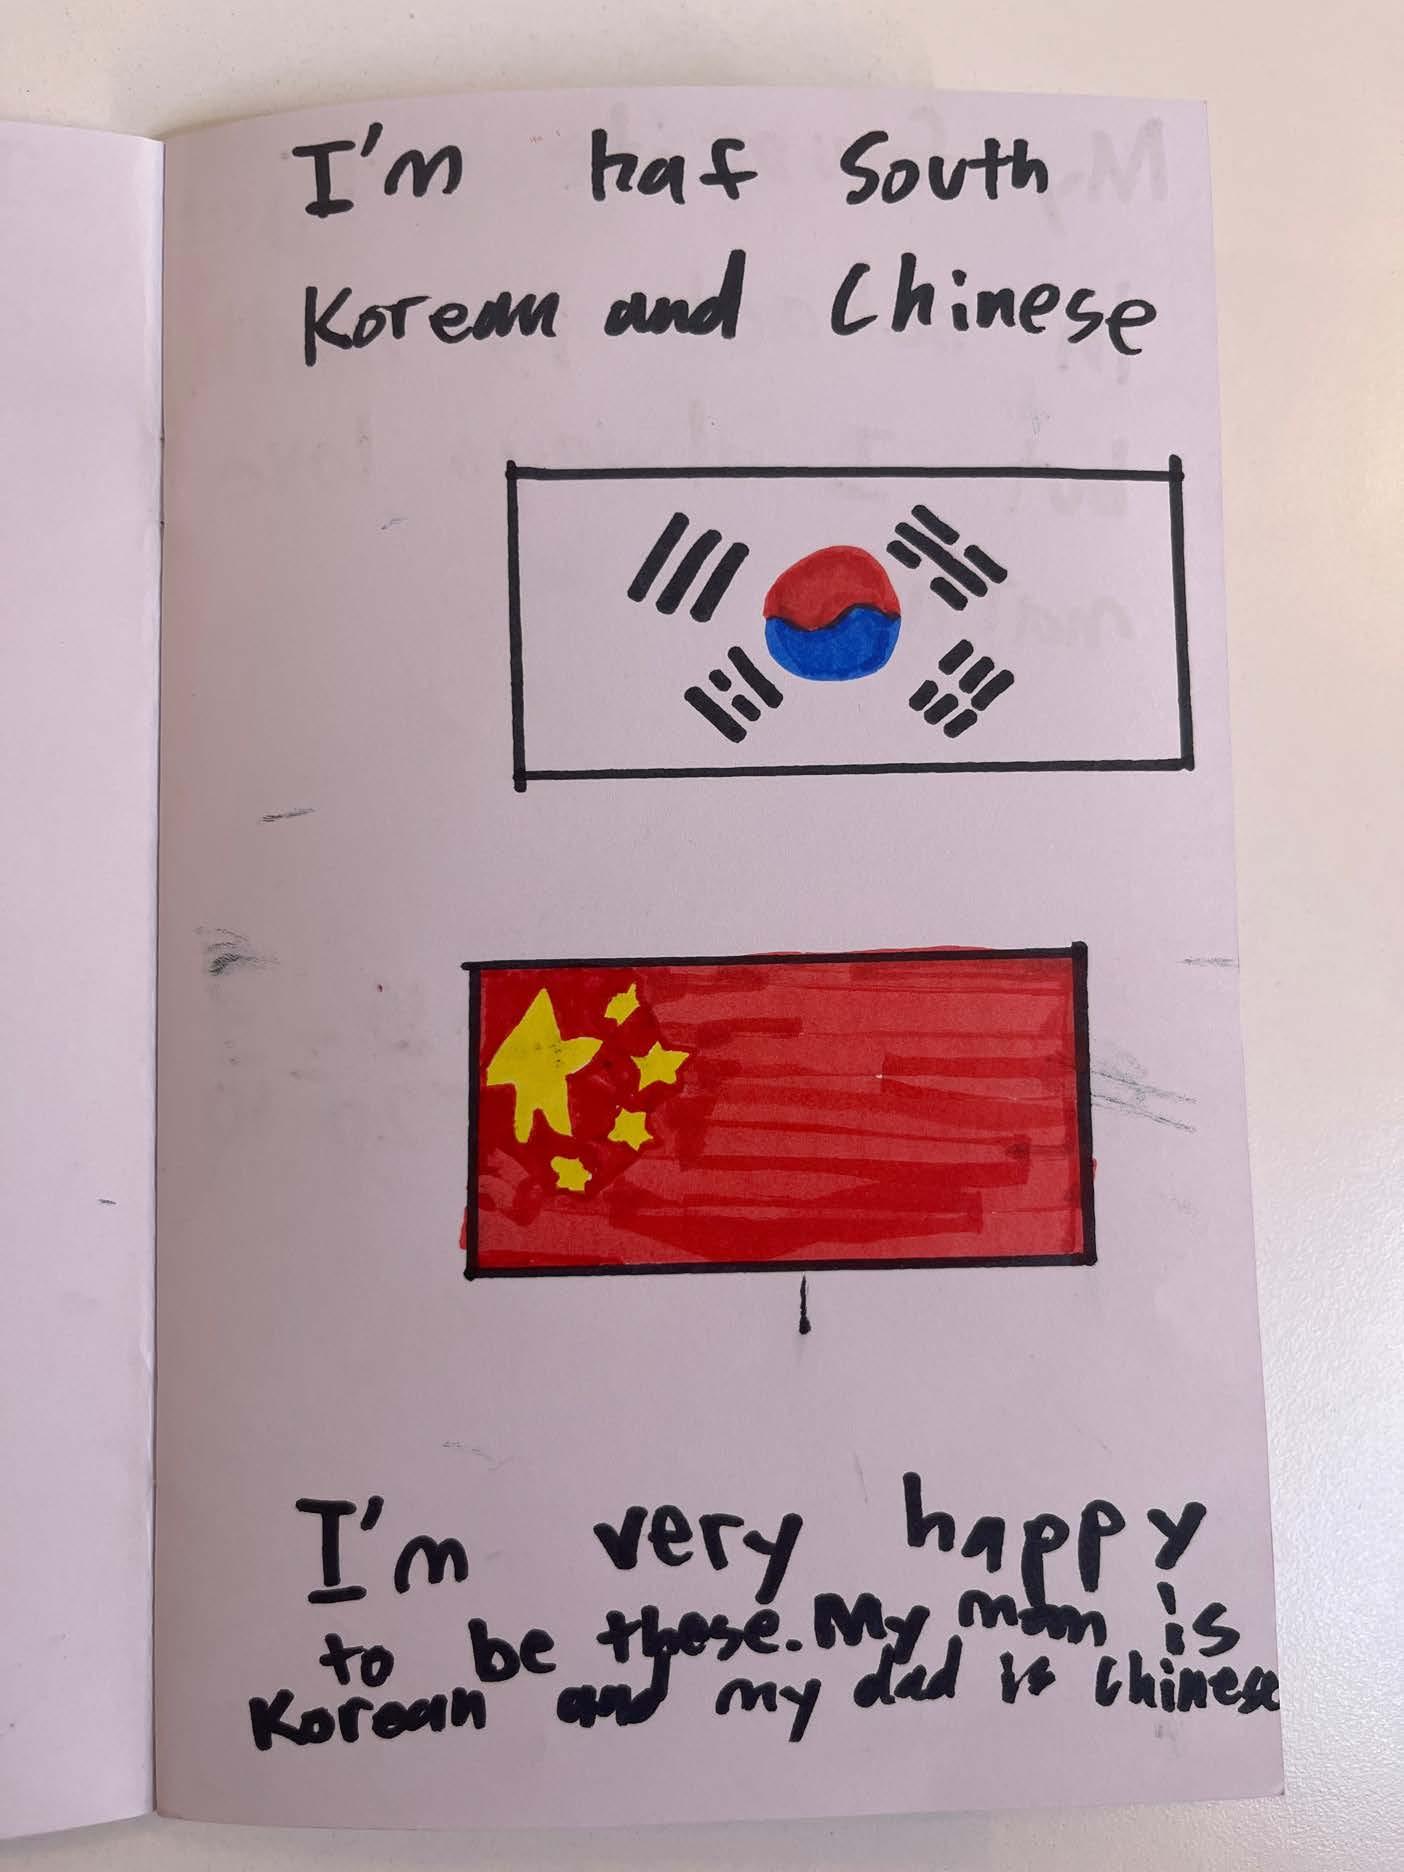 I'm haf South
Korean and Chinese
I'm very happy
to be these. My mom is
Korean and my dad is Chinese